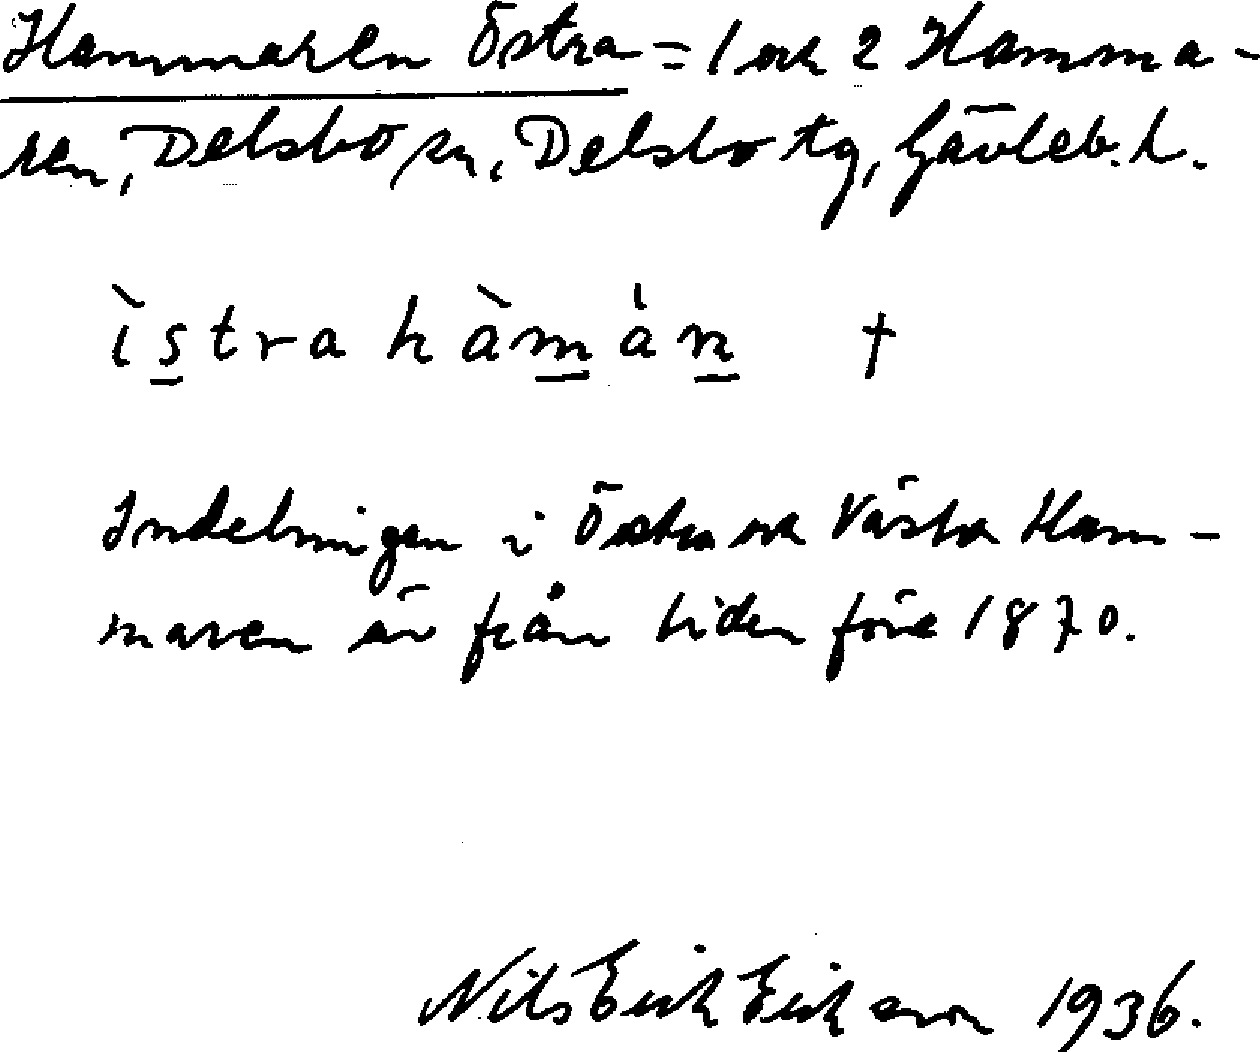 Hammaren Östra = 1 och 2 Hamma-
ren, Delsbo sn, Delsbo tg, Gävleb. l.
ìs̲tra hàm̲àn̲ †
Indelningen i Östra och Västra Ham-
maren är från tiden före 1870.
Nils Erik Eriksson 1936.